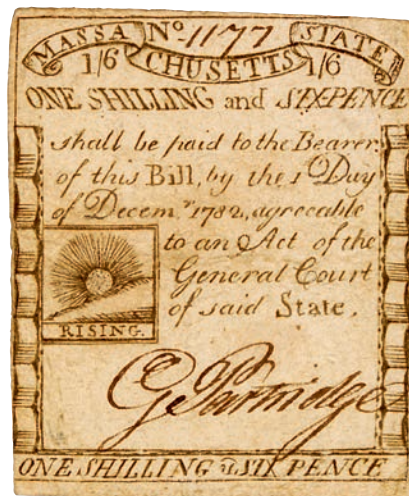 MASSA No. 1177 STATE
1/6 CHUSETTS 1/6
ONE SHILLING and SIXPENCE
shall be paid to the Bearer
of this Bill, by the 1 Day
of Decem.r 1782, agreeable
to an Act of the
General Court
of said State.
RISING.
G Partridge
ONE SHILLING & SIX PENCE